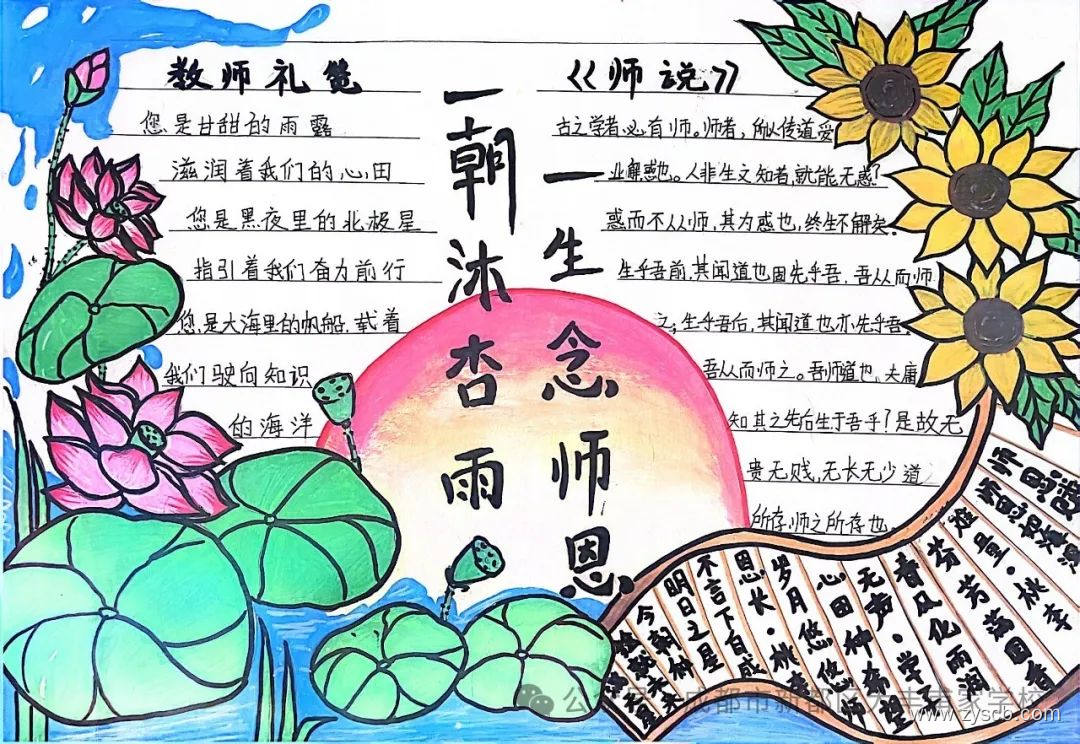 教师礼赞
您是甘甜的雨露
滋润着我们的心田
您是黑夜里的北极星
指引着我们奋力前行
您是大海里的帆船,载着
我们驶向知识
的海洋
一朝沐杏雨
一生念师恩
《师说》
古之学者必有师。师者,所以传道受
业解惑也。人非生文知者,就能无惑?
惑而不从师,其为惑也,终生不解矣。
生乎吾前,其闻道也固先乎吾,吾从而师
之;生乎吾后,其闻道也亦先乎吾,
吾从而师之。吾师道也,夫庸
知其之先后生于吾乎!是故无
贵无贱,无长无少道
所存,师之所存也
师恩颂
师恩如海深
难量·桃李
芬芳满园香
春风化雨润
无声·学
心田种
岁月悠悠师
恩长·桃
不言下自成
明日之星
今朝种
公众号·成都市新都区大丰甫家学校
www.zyscb.com